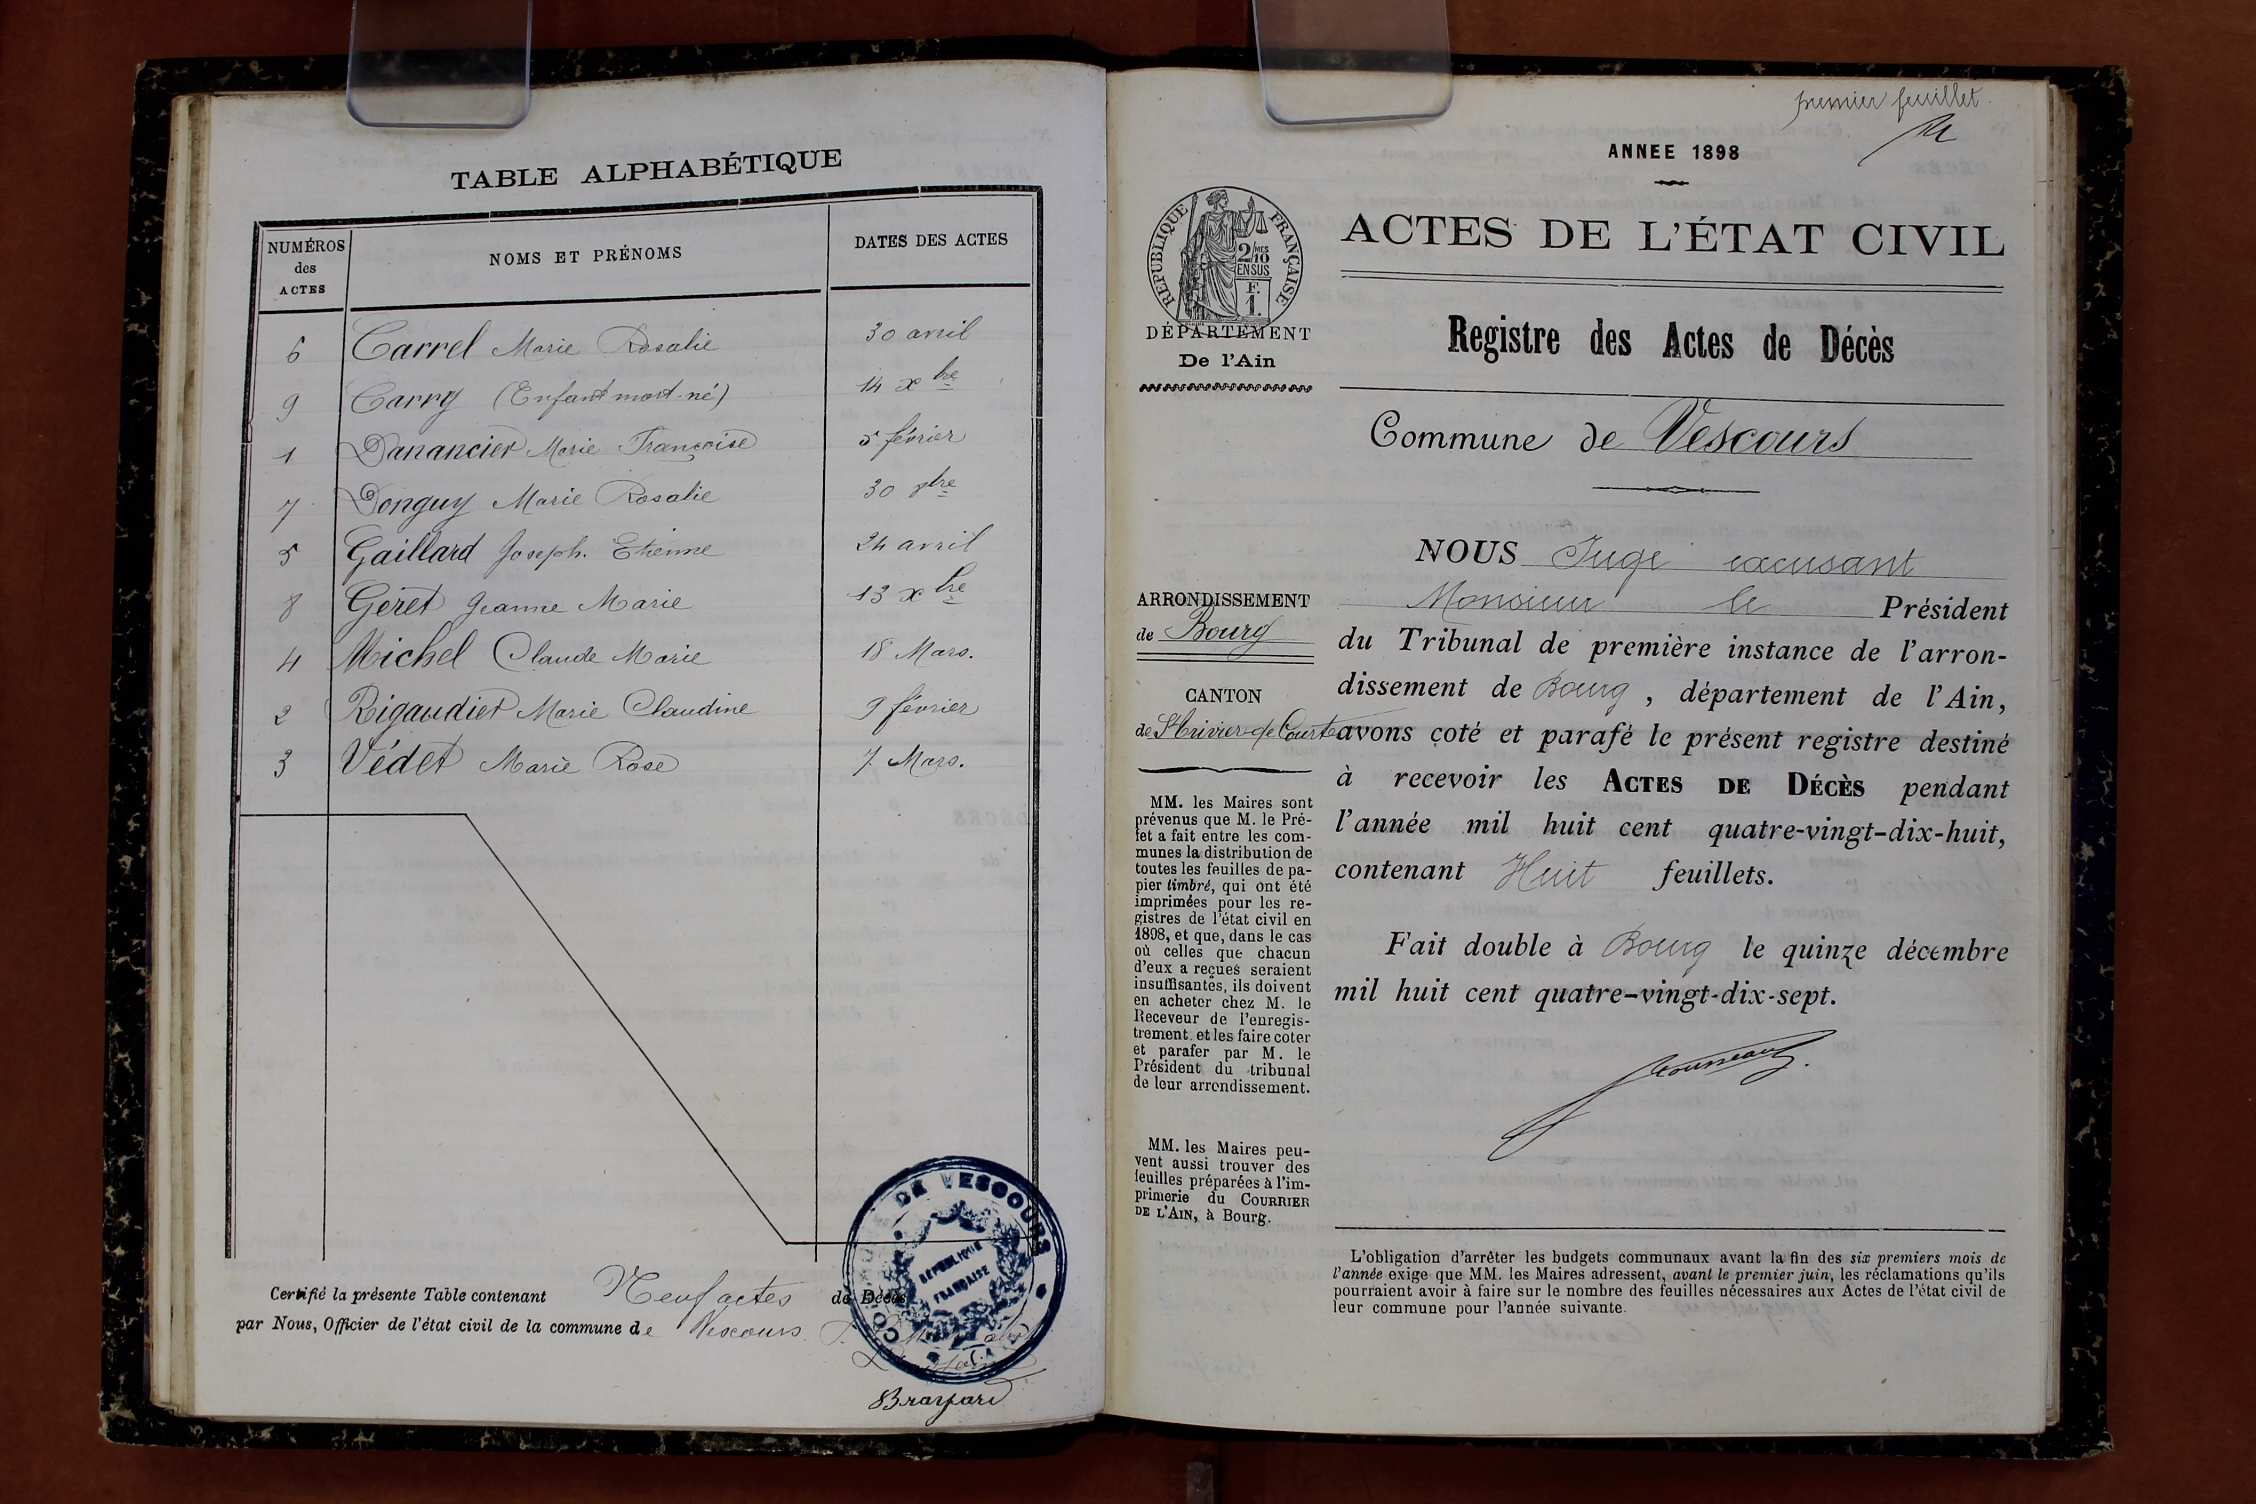 TABLE ALPHABÉTIQUE
NUMÉROS des ACTES NOMS ET PRÉNOMS DATES DES ACTES
6 Carrel Marie Rosalie 30 avril
9 Carry (Enfant mort-né) 14 xbre
1 Danancier Marie Françoise 5 février
7 Donguy Marie Rosalie 30 8bre
5 Gaillard Joseph. Etienne 24 avril
8 Géret Jeanne Marie 13 xbre
4 Michel Claude Marie 18 Mars.
2 Rigaudier Marie Claudine 9 février
3 Védet Marie Rose 7 Mars.
Certifié la présente Table contenant Neuf actes de Décès
par Nous, Officier de l'état civil de la commune de Vescours.
DE VESCOURS
RÉPUBLIQUE
FRANÇAISE
premier feuillet.
ANNEE 1898
RÉPUBLIQUE FRANÇAISE
2/MES
10
EN SUS
F.
1.
DÉPARTEMENT
De l'Ain
ACTES DE L'ÉTAT CIVIL
Registre des Actes de Décès
Commune de Vescours
ARRONDISSEMENT
de Bourg
CANTON
de St Trivier-de-Courtes
MM. les Maires sont
prévenus que M. le Pré-
fet a fait entre les com-
munes la distribution de
toutes les feuilles de pa-
pier timbré, qui ont été
imprimées pour les re-
gistres de l'état civil en
1898, et que, dans le cas
où celles que chacun
d'eux a reçues seraient
insuffisantes, ils doivent
en acheter chez M. le
Receveur de l'enregis-
trement et les faire coter
et parafer par M. le
Président du tribunal
de leur arrondissement.
MM. les Maires peu-
vent aussi trouver des
feuilles préparées à l'im-
primerie du COURRIER
DE L'AIN, à Bourg.
NOUS Juge excusant
Monsieur le Président
du Tribunal de première instance de l'arron-
dissement de Bourg, département de l'Ain,
avons coté et parafé le présent registre destiné
à recevoir les ACTES DE DÉCÈS pendant
l'année mil huit cent quatre-vingt-dix-huit,
contenant Huit feuillets.
Fait double à Bourg le quinze décembre
mil huit cent quatre-vingt-dix-sept.
L'obligation d'arrêter les budgets communaux avant la fin des six premiers mois de
l'année exige que MM. les Maires adressent, avant le premier juin, les réclamations qu'ils
pourraient avoir à faire sur le nombre des feuilles nécessaires aux Actes de l'état civil de
leur commune pour l'année suivante.